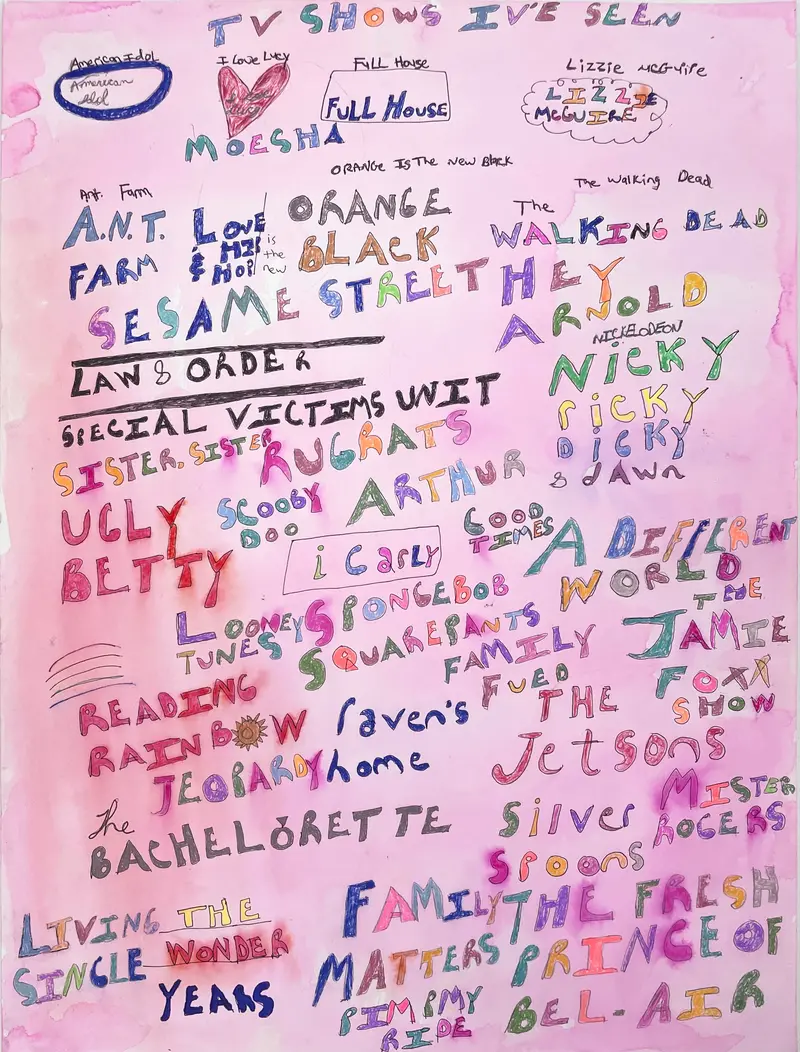 TV SHOWS I'VE SEEN
American Idol
American
Idol
I Love Lucy
Full House
FULL HOUSE
Lizzie McGuire
LIZZIE
McGUIRE
MOESHA
ORANGE IS The New Black
Ant. Farm
A.N.T.
FARM
LOVE
& HIP
HOP
ORANGE
is
the
new
BLACK
The Walking Dead
The
WALKING DEAD
SESAME STREET
HEY
ARNOLD
LAW & ORDER
SPECIAL VICTIMS UNIT
NICKELODEON
NICKY
RICKY
DICKY
& dAWN
SISTER, SISTER
RUGRATS
UGLY
BETTY
SCOOBY
DOO
ARTHUR
i CARLY
GOOD
TIMES
A DIFFERENT
WORLD
LOONEY
TUNES
SPONGEBOB
SQUAREPANTS
FAMILY
FUED
THE
JAMIE
FOXX
SHOW
READING
RAINBOW
raven's
home
THE
Jetsons
JEOPARDY
The
BACHELORETTE
Silver
Spoons
MISTER
ROGERS
LIVING
SINGLE
THE
WONDER
YEARS
FAMILY
MATTERS
THE FRESH
PRINCE OF
BEL-AIR
PIMP MY
RIDE